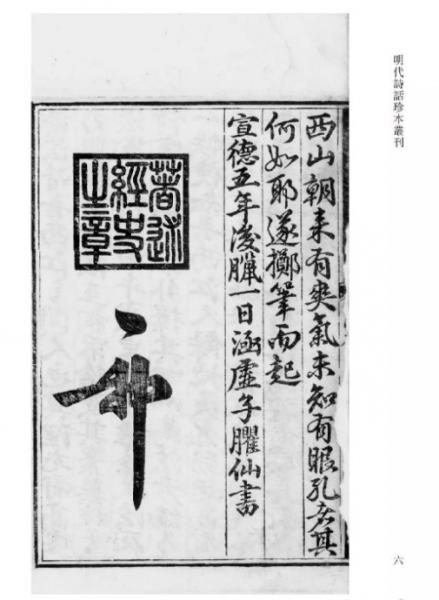 明代詩話珍本叢刊
西山朝来有爽氣未知有眼孔者其
何如耶遂擲筆而起
宣德五年後臘一日涵虚子臞仙書
著述
經史
之章
六